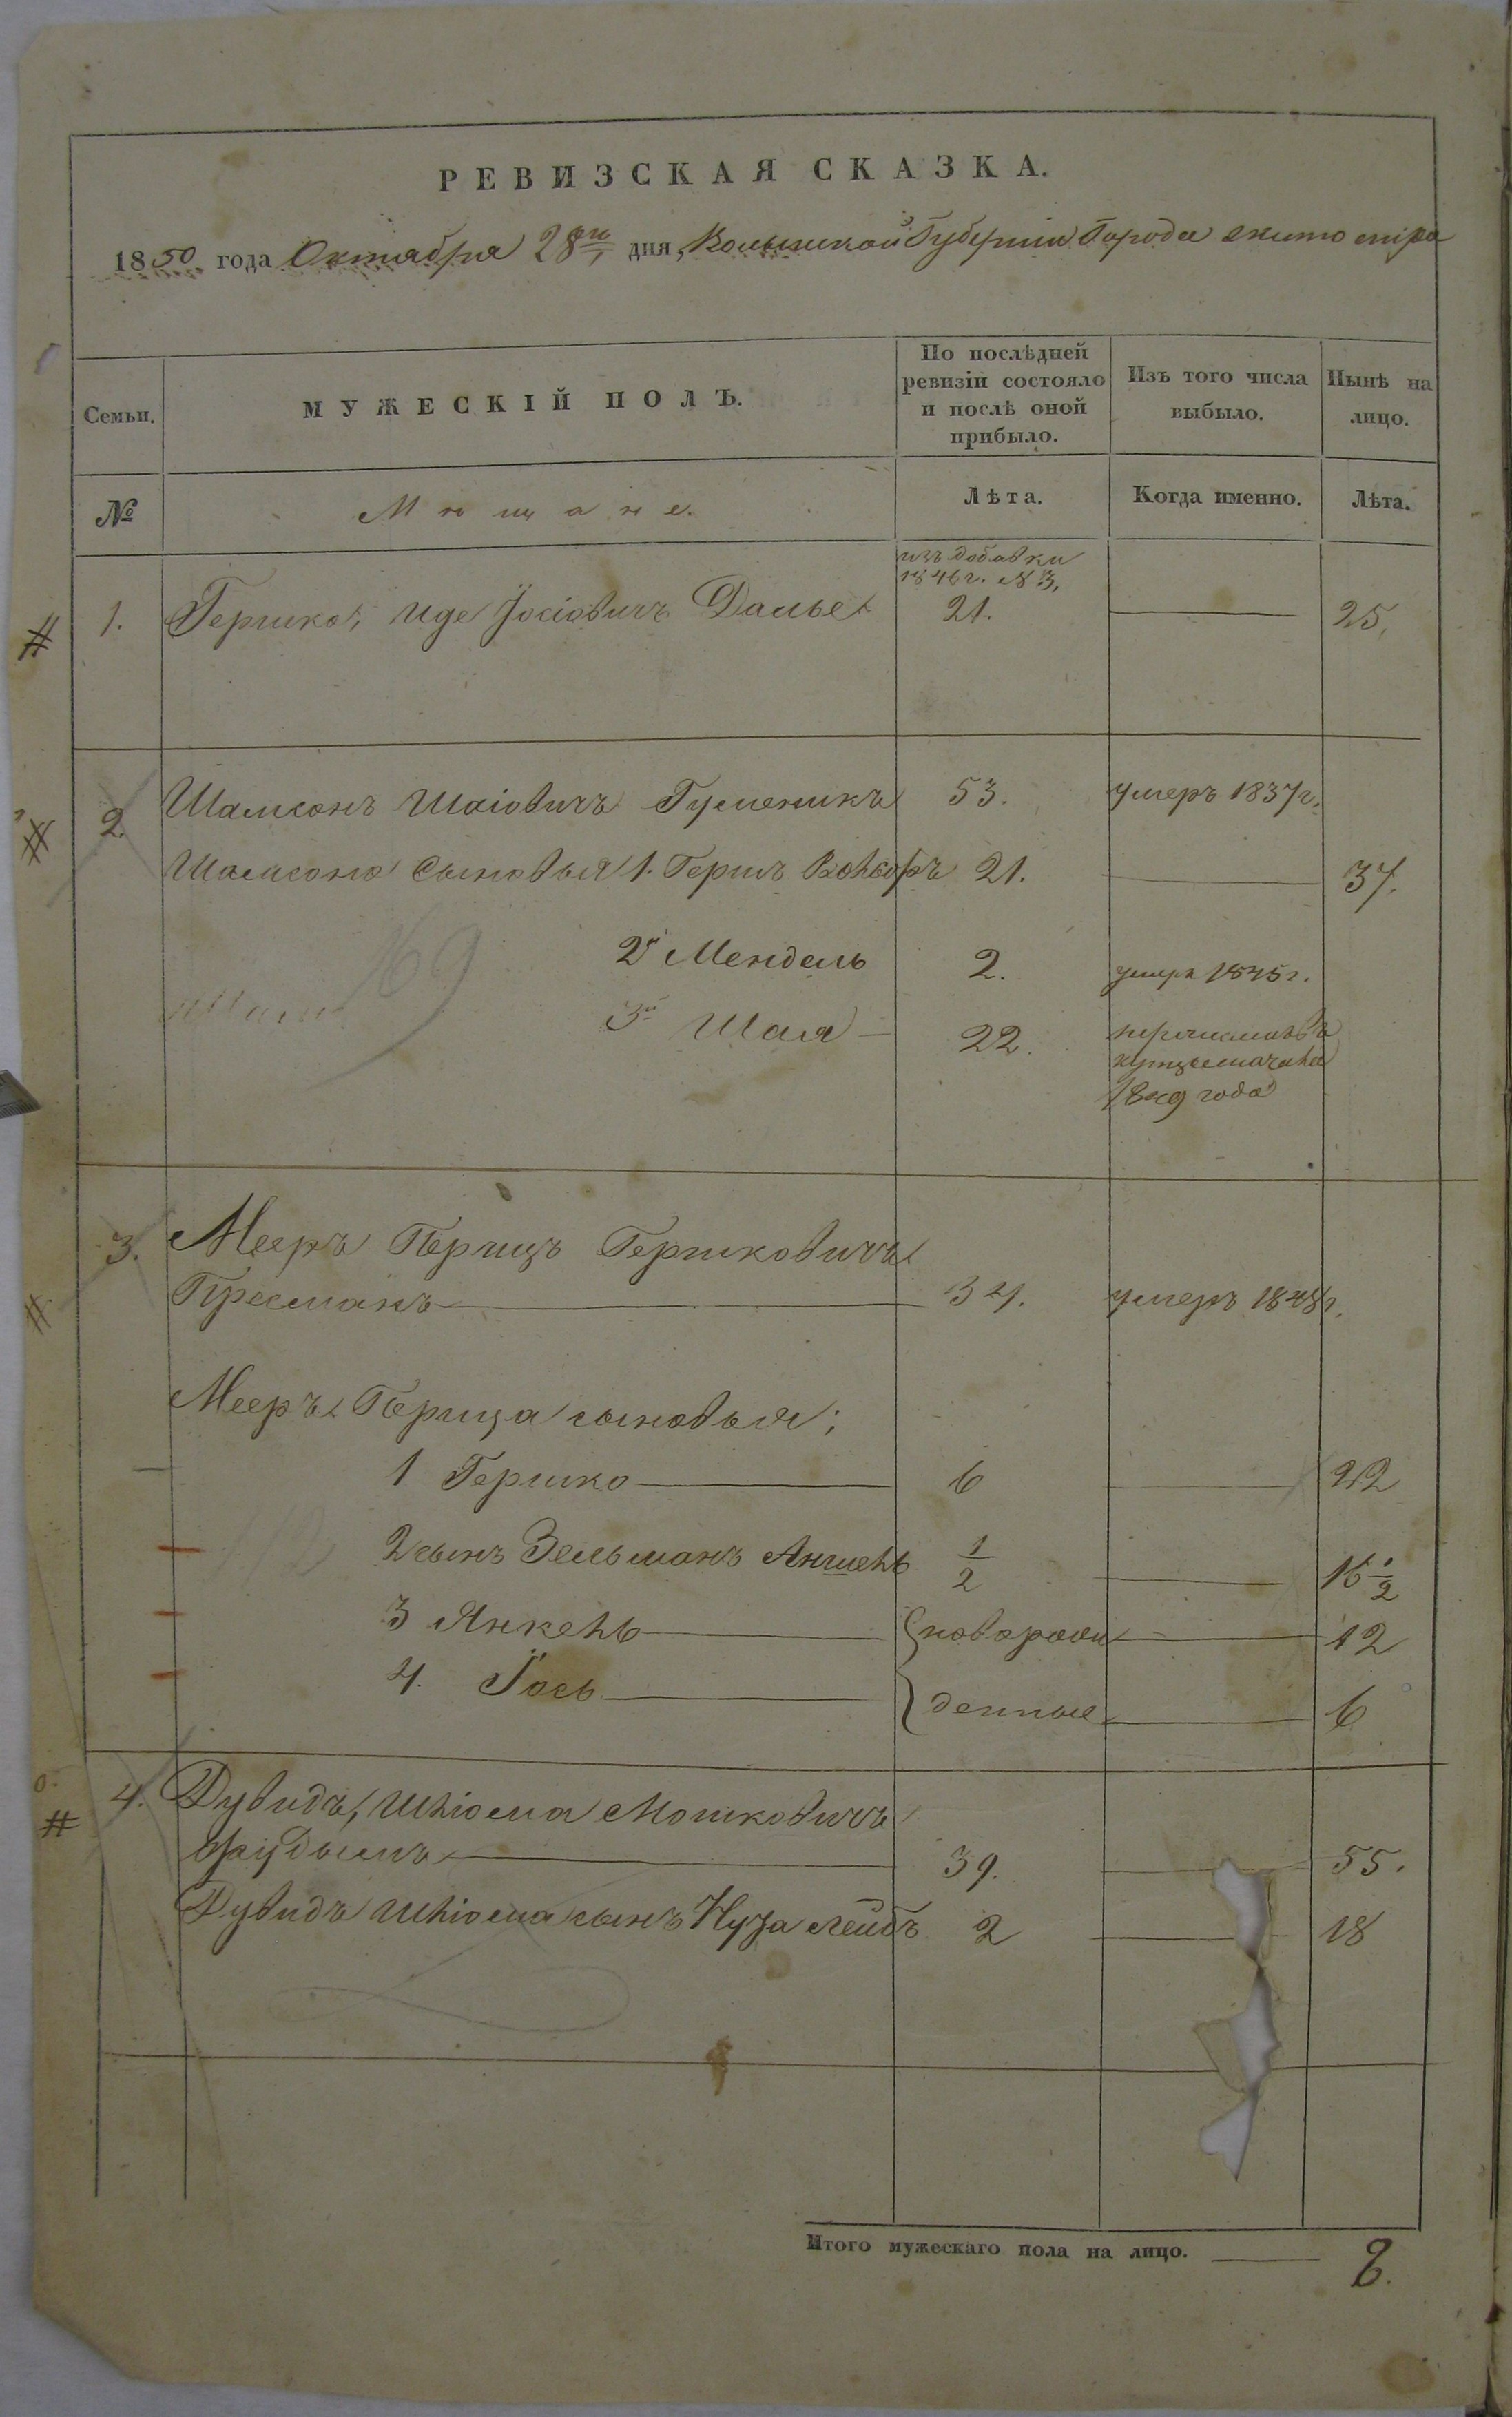 РЕВИЗСКАЯ СКАЗКА.
1850 года Октября 28го дня, Волынской Губерніи Города Житоміра
Семьи. МУЖЕСКІЙ ПОЛЪ. По послѣдней ревизіи состояло и послѣ оной прибыло. Изъ того числа выбыло. Нынѣ на лицо.
№ Мѣщане. Лѣта. Когда именно. Лѣта.
изъ добавки
1846г. № 3,
1. Гершко, Иде Іосіовичъ 21. 25.
2. Шамсонъ Шаіовичъ Гуменикъ 53. умеръ 1837г.
Шамсона Сыновья 1. Герш Вольфъ 21. 37.
2й Мендель 2. умеръ 1845г.
3й Шая 22.
1849 года
3. Мееръ Перицъ Гершковичъ
Пресманъ 34. умеръ 1848г.
Мееръ Перица сыновья;
1 Гершко 6 22
2 сынъ Зельманъ Аншель 1/2 16 1/2
3 Янкель новорож 12
4. Іось денные 6
4. Дувидъ, Шліома Мошковичъ
39. 55.
Дувидъ Шліома сынъ Нуза лейбъ 2 18
Итого мужескаго пола на лицо. 8.